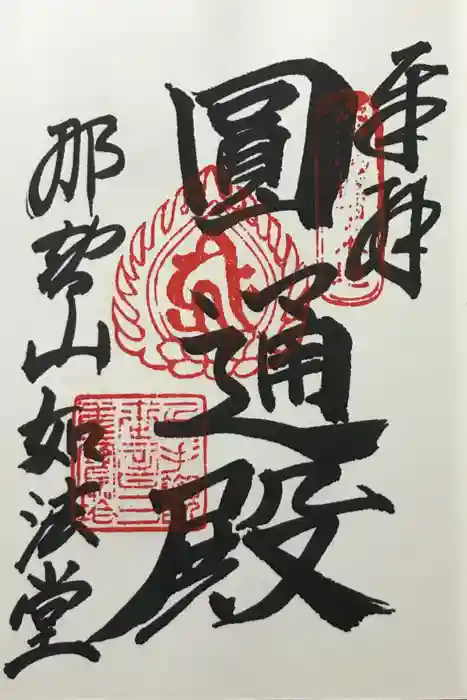 奉拝
圓通殿
那智山如法堂